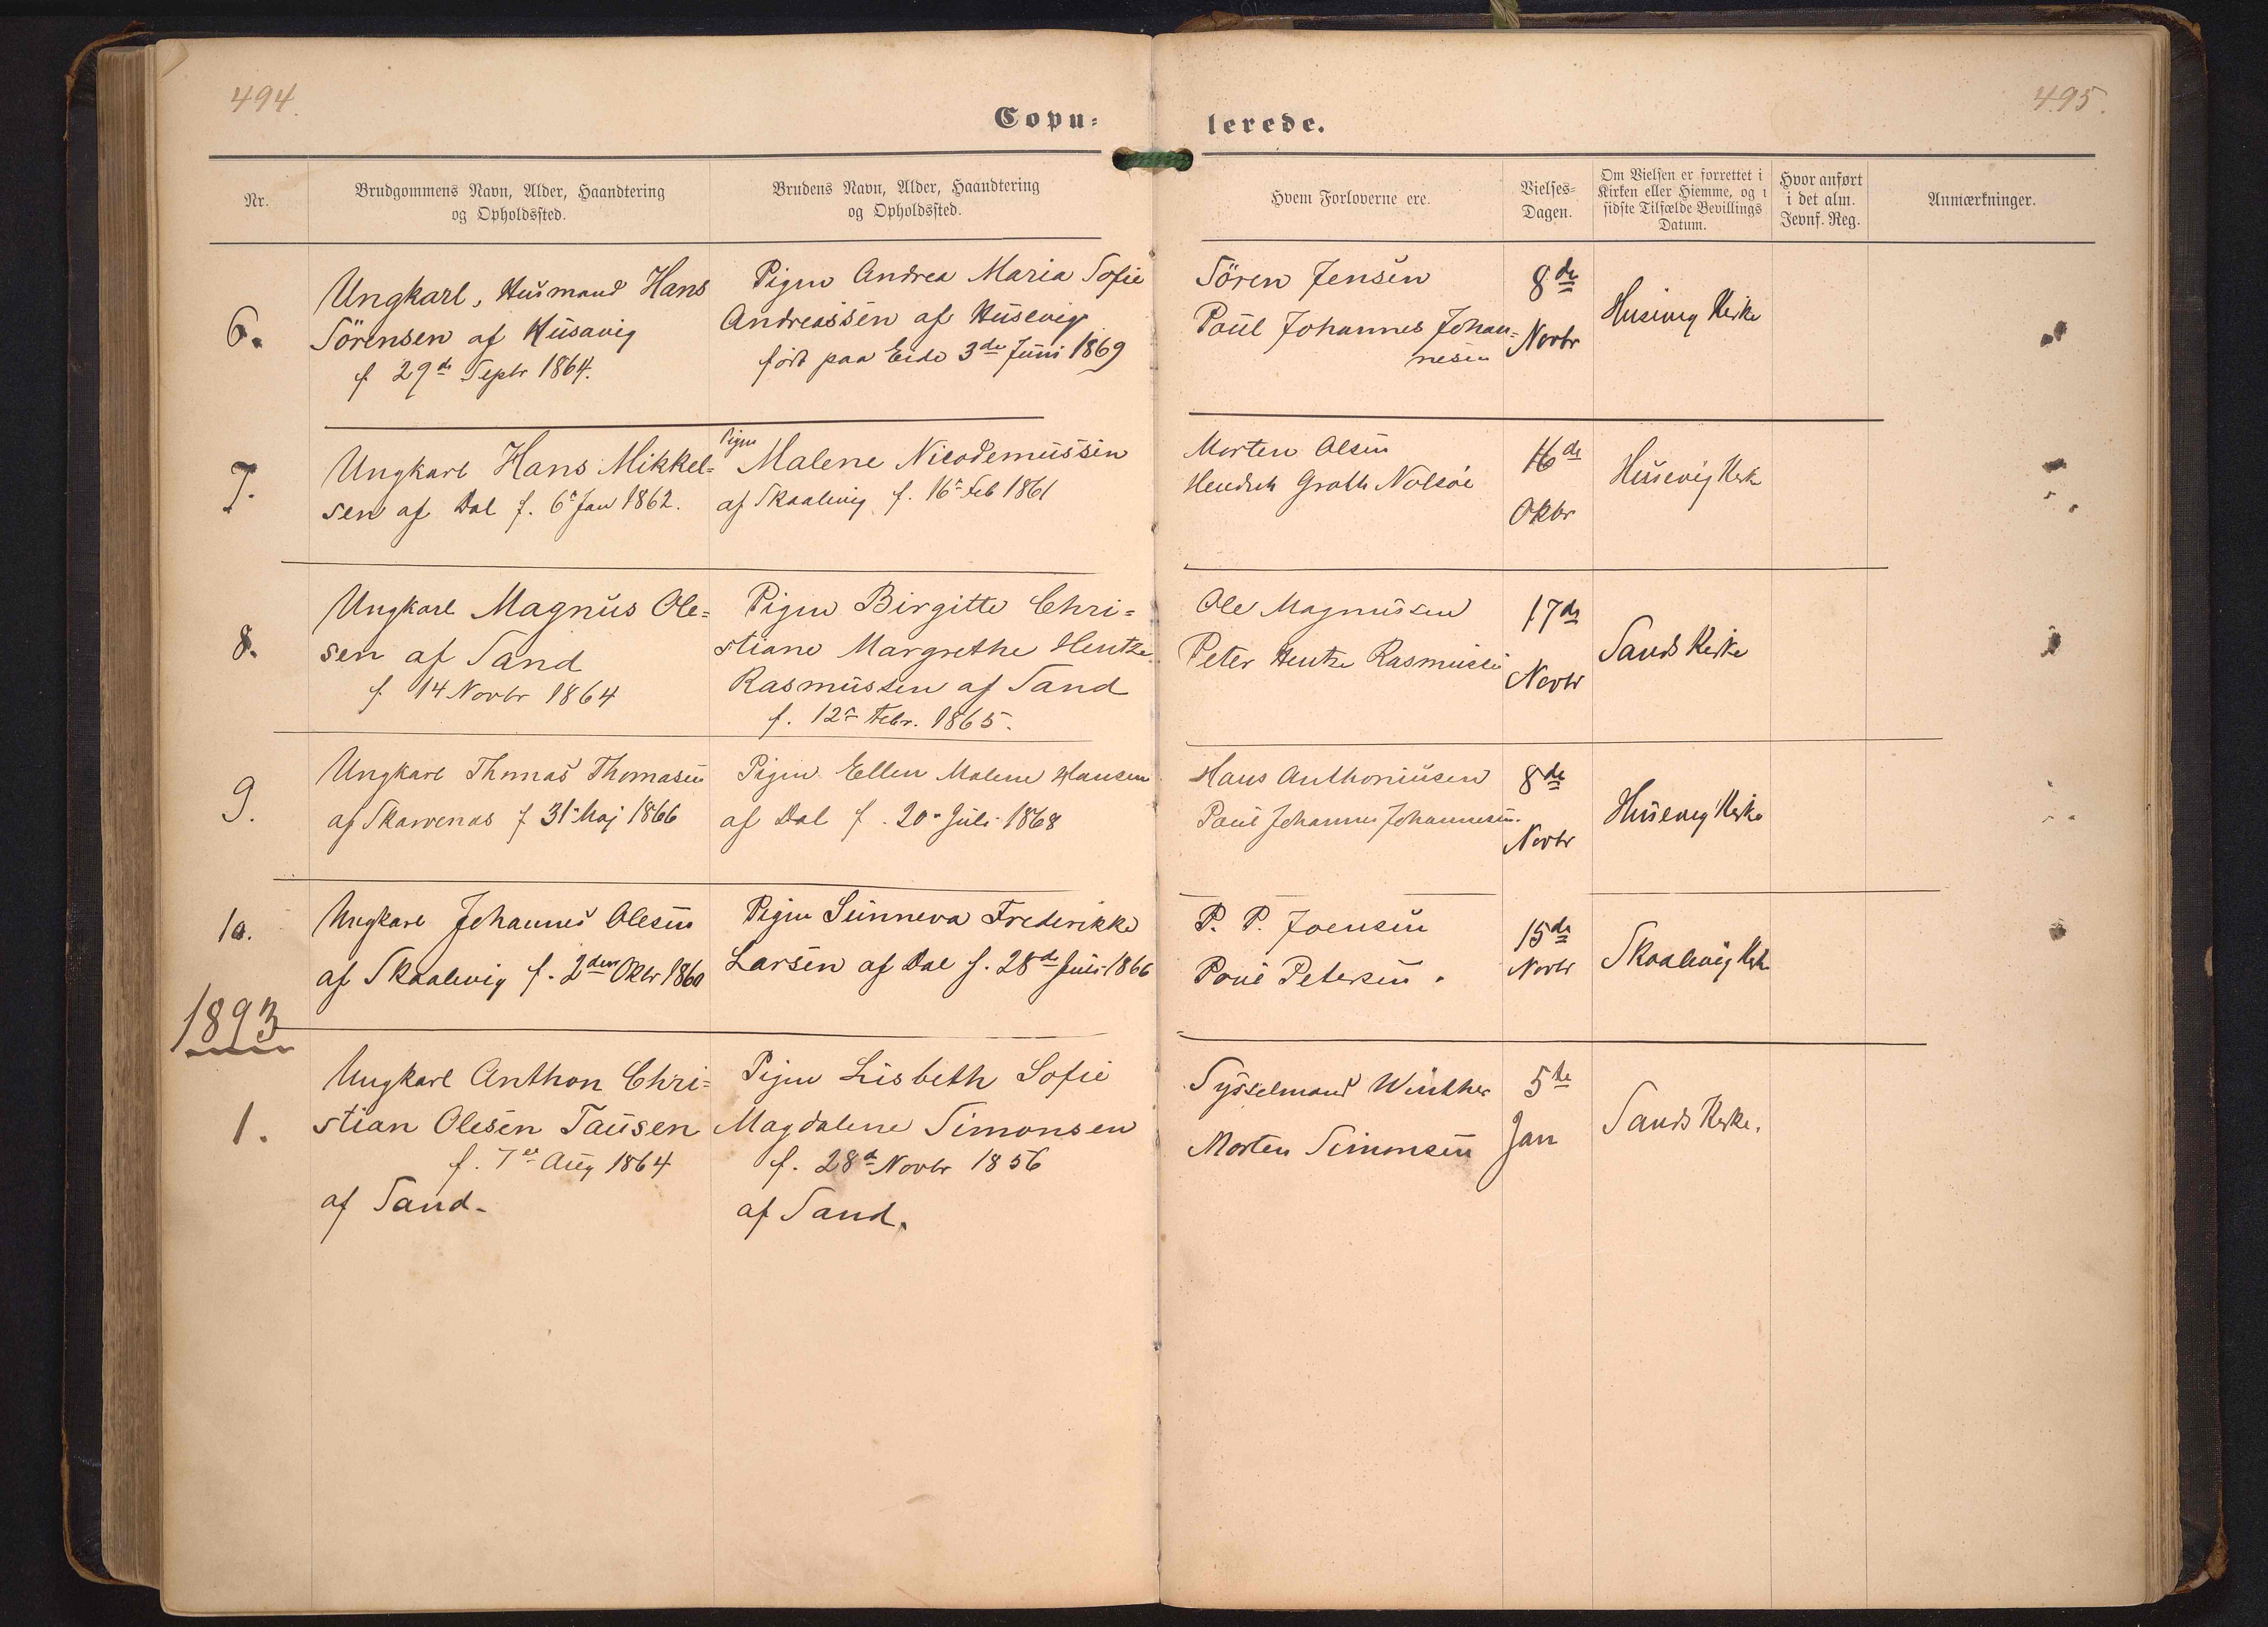 494.
495.
Copu-
lerede.
Nr.
Brudgommens Navn, Alder, Haandtering
og Opholdssted.
Brudens Navn, Alder, Haandtering
og Opholdssted.
Hvem Forloverne ere.
Vielses-
Dagen.
Om Vielsen er forrettet i
Kirken eller Hjemme, og i
sidste Tilfælde Bevillings
Datum.
Hvor anført
i det alm.
Jevnf. Reg.
Anmærkninger.
6.
Ungkarl, Husmand Hans
Sörensen af Husavig
f. 29de Septr 1864.
Pigen Andrea Maria Sofie
Andreassen af Husevig
født paa Eide 3de Juni 1869
Sören Jensen
Poul Johannes Johan=
nesen
8de
Novbr
Husevig Kirke
7.
Ungkarl Hans Mikkel=
sen af Dal f. 6 Jan 1862.
Pigen
Malene Nicodemussen
af Skaalevig f. 16 Feb 1861
Morten Olsen
Hendrik Groth Nolsøe
16de
Oktbr
Husevig Kirke
8.
Ungkarl Magnus Ole=
sen af Sand
f. 14 Novbr 1864
Pigen Birgitte Chri=
stiane Margrethe Hentze
Rasmussen af Sand
f. 12 Febr. 1865.
Ole Magnussen
Peter Hentze Rasmussen
17de
Novbr
Sands Kirke
9.
Ungkarl Thomas Thomasen
af Skarvenæs f 31 Maj 1866
Pigen Ellen Malene Hansen
af Dal f. 20 Juli 1868
Hans Anthoniusen
Poul Johannes Johannesen.
8de
Novbr
Husevig Kirke
10.
Ungkarl Johannes Olesen
af Skaalevig f. 2den Oktbr 1860
Pigen Sunneva Frederikke
Larsen af Dal f. 28de Juli 1866
P. P. Joensen
Poul Petersen.
15de
Novbr
Skaalevig Kirke
1893
1.
Ungkarl Anthon Chri=
stian Olesen Tausen
f. 7de Aug 1864
af Sand.
Pigen Lisbeth Sofie
Magdalene Simonsen
f. 28de Novbr 1856
af Sand.
Sysselmand Winther
Morten Simonsen
5te
Jan
Sands Kirke.